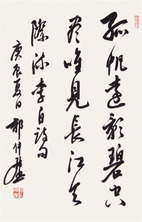 孤帆遠影碧空
盡唯見長江天
際流李白詩句
庚辰夏日